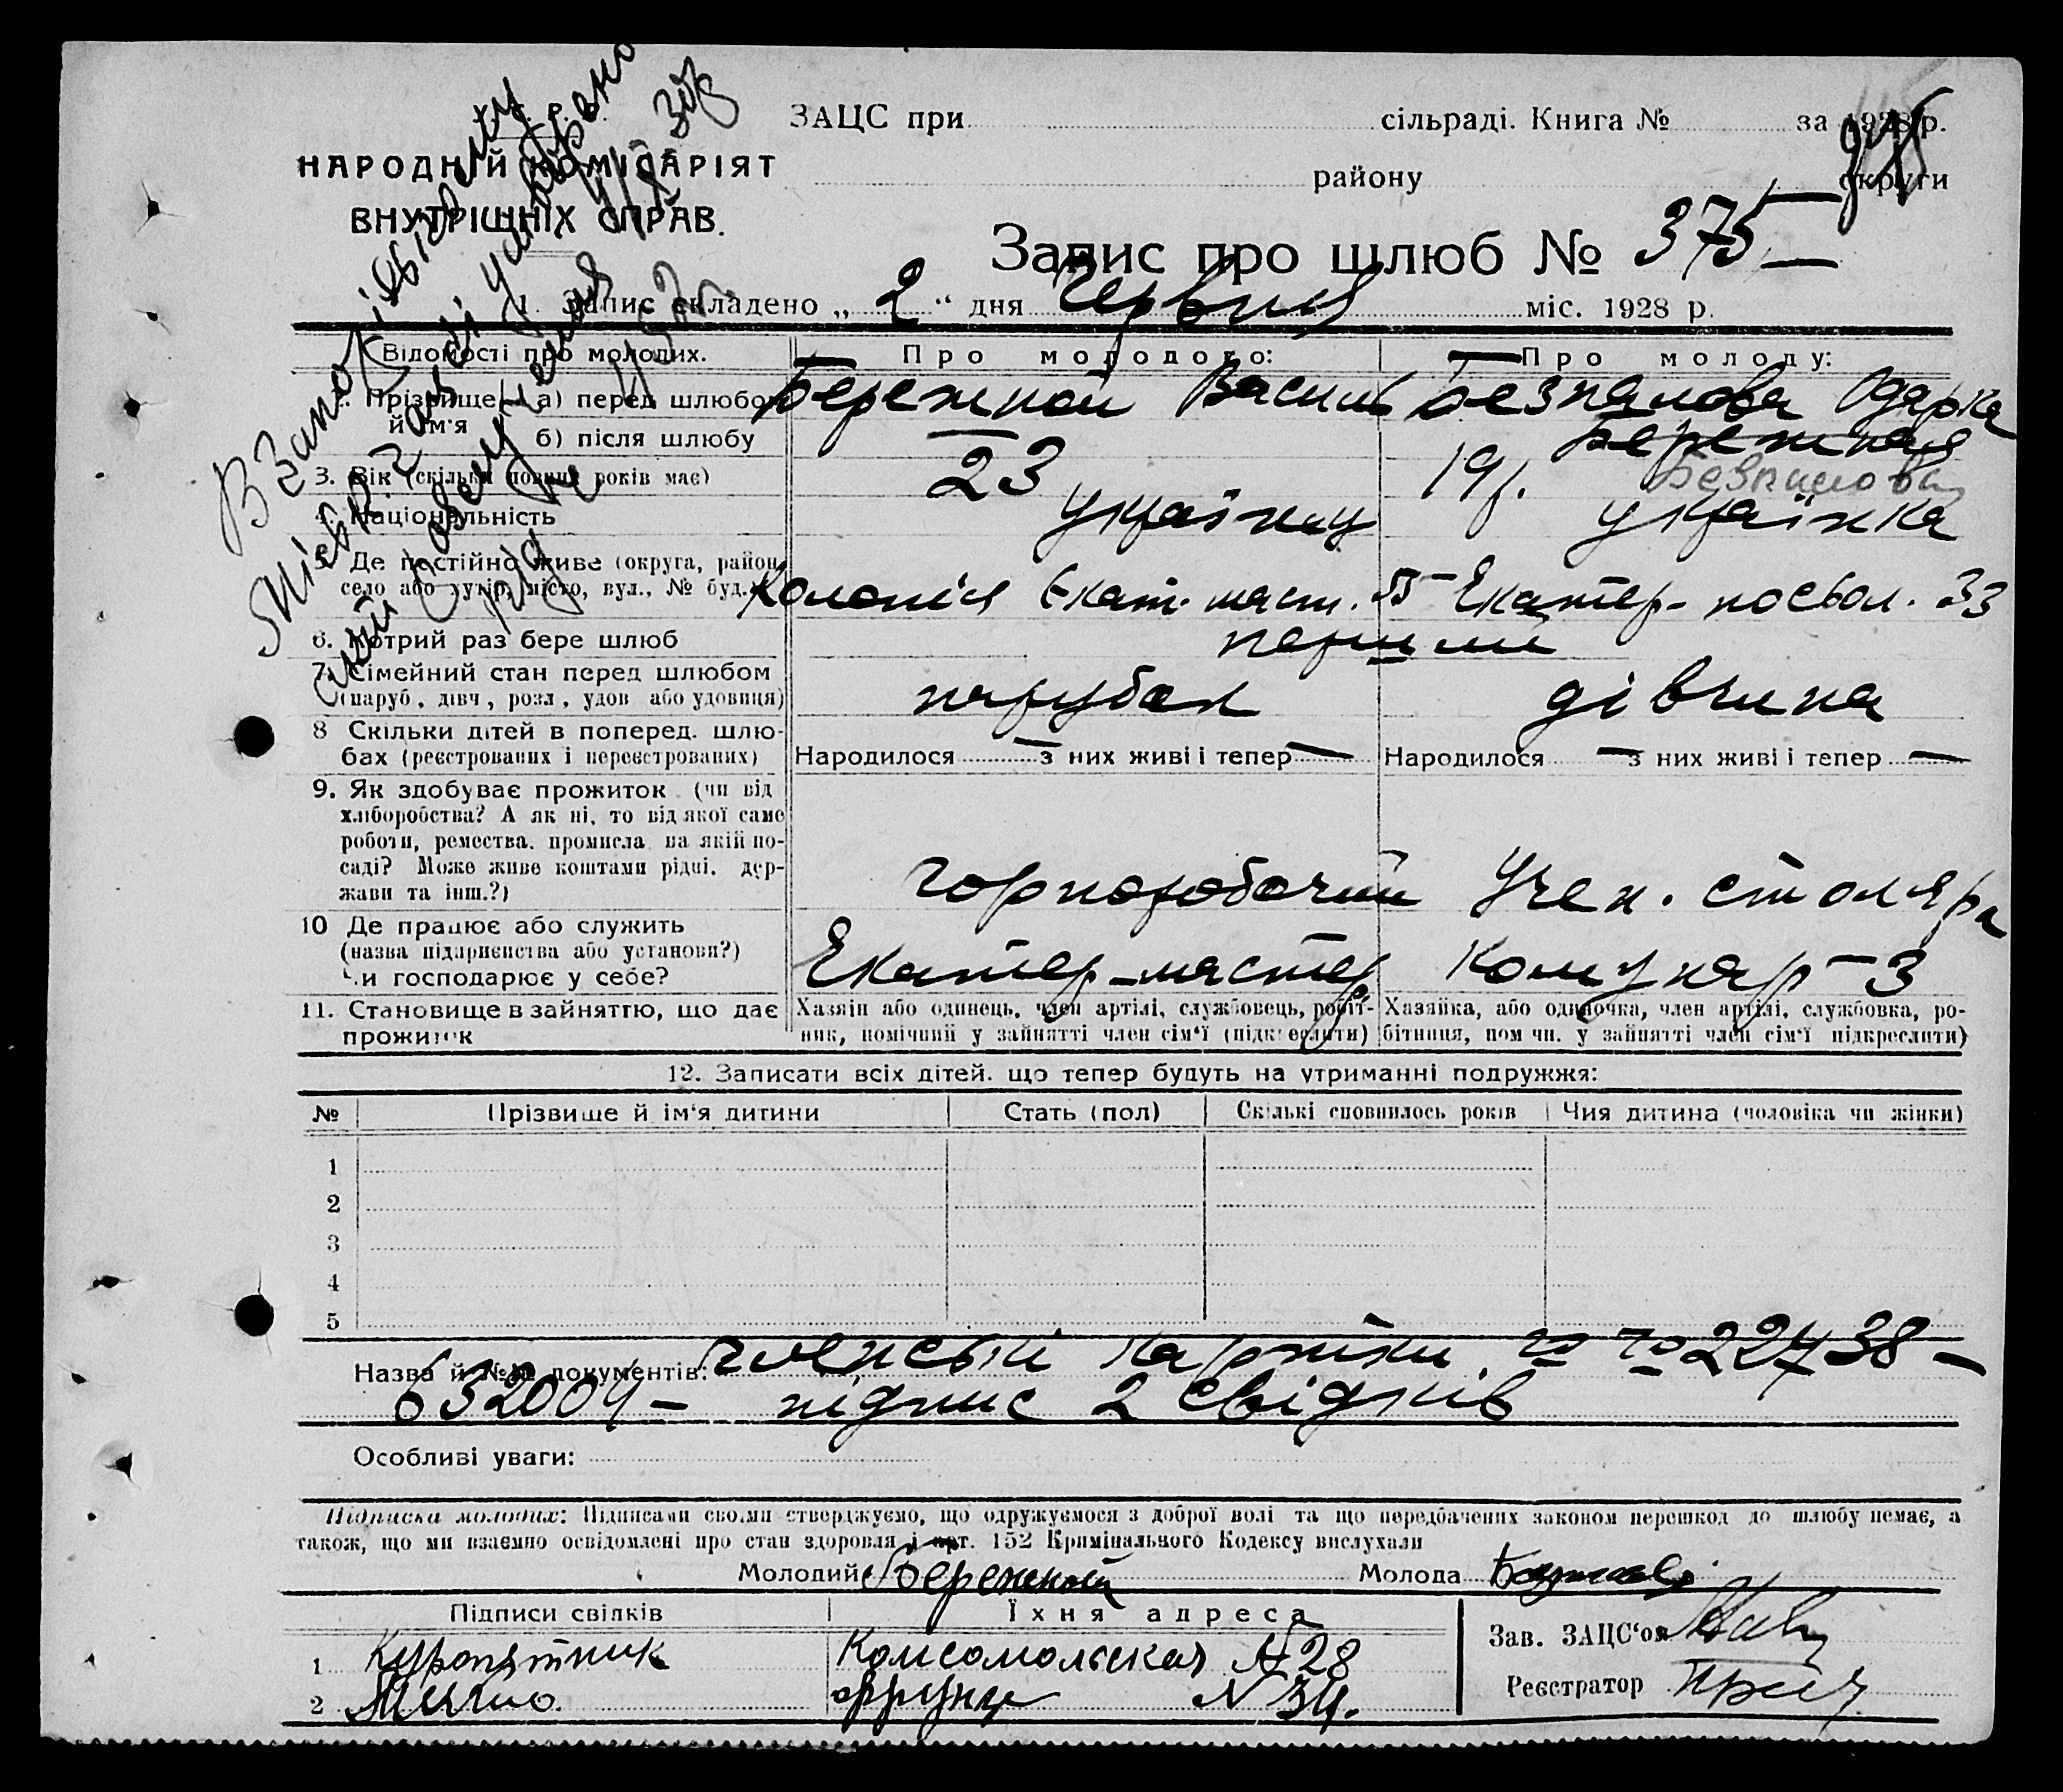 ЗАЦС при сільраді. Книга № за 1928 р.
НАРОДНІЙ КОМІСАРІЯТ
ВНУТРІШНІХ СПРАВ.
району округи
Запис про шлюб № 375
1. Запис складено „ 2 “ дня Червня міс. 1928 р.
Відомості про молодих. Про молодого: Про молоду:
2. Прізвище й ім'я а) перед шлюбом Бережной Василь Безпалова Одарка
б) після шлюбу Бережная
Безпалова
3. Вік (скільки повних років має) 23 19 р.
4. Національність українец українка
5. Де постійно живе (округа, район,
село або хутір, місто, вул., № буд.) Колонія Екат. маст. 55 Екатер- 33
6. Котрий раз бере шлюб перший
7. Сімейний стан перед шлюбом
(паруб., дівч., розл., удов. або удовиця) парубок дівчина
8 Скільки дітей в поперед. шлю-
бах (реєстрованих і нереєстрованих) Народилося — з них живі і тепер — Народилося — з них живі і тепер —
9. Як здобуває прожиток (чи від
хліборобства? А як ні, то від якої саме
роботи, ремества, промисла на якій по-
саді? Може живе коштами рідні, дер-
жави та інш.?) горноробочий Учен. столяра
10 Де працює або служить
(назва підприємства або установи?)
чи господарює у себе? Екатер-мастер Комунар-3
11. Становище в зайняттю, що дає
прожиток
Хазяїн або одинець, член артілі, службовець, робіт-
ник, помічний у зайнятті член сім'ї (підкреслити)
Хазяйка, або одиночка, член артілі, службовка, ро-
бітниця, пом чн. у зайнятті член сім'ї підкреслити)
12. Записати всіх дітей, що тепер будуть на утриманні подружжя:
№ Прізвище й ім'я дитини Стать (пол) Скількі сповнилось років Чия дитина (чоловіка чи жінки)
1
2
3
4
5
Назва й №№ документів: членські картки 22438 —
632004 — підпис 2 свідків
Особливі уваги:
Підписка молодих: Підписами своїми стверджуємо, що одружуємося з доброї волі та що передбачених законом перешкод до шлюбу немає, а
також, що ми взаємно освідомлені про стан здоровля і арт. 152 Кримінального Кодексу вислухали
Молодий Бережной Молода
Підписи свідків Їхня адреса
Зав. ЗАЦС'ом
1 Куропятник Комсомольская №28
Реєстратор
2 Фрунзе №34.